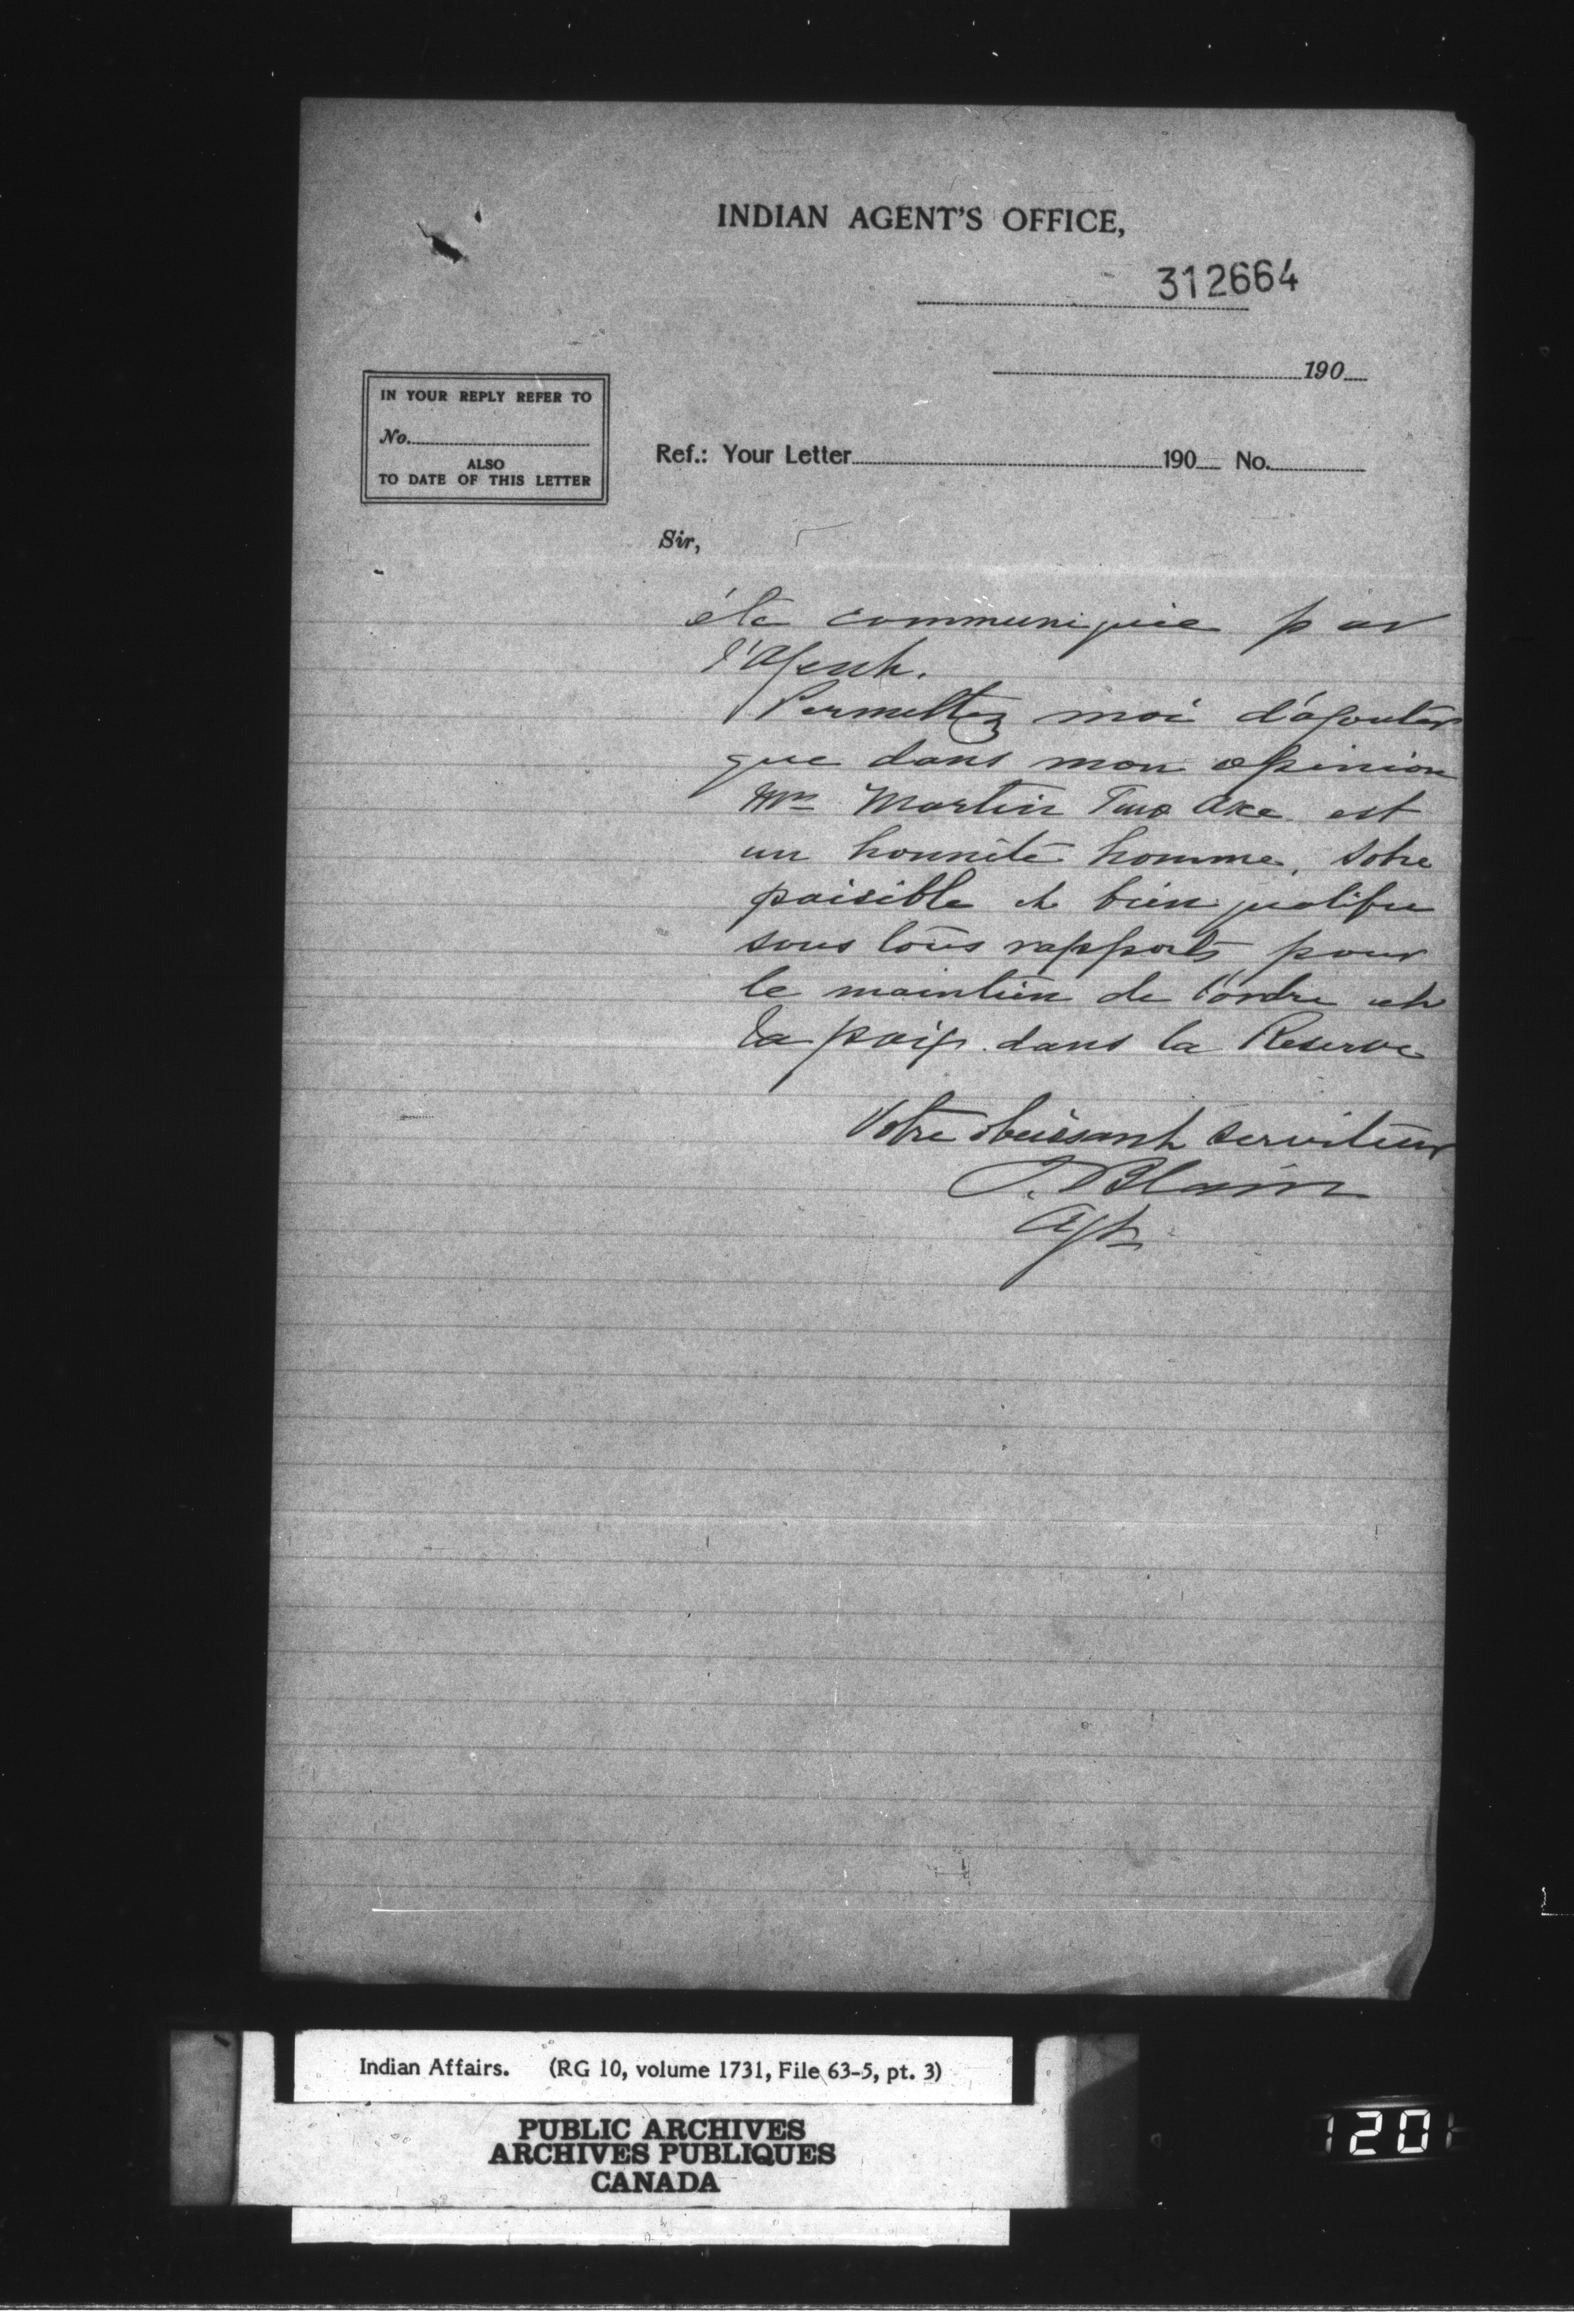 INDIAN AGENT'S OFFICE,
312664
190
IN YOUR REPLY REFER TO
No.
ALSO
TO DATE OF THIS LETTER
Ref.: Your Letter 190 No.
Sir,
été communiquée par
l'Agent.
Permettez moi d'ajouter
que dans mon opinion
Mr Martin Two Axe est
un honnête homme, sobre
paisible et bien qualifié
sous tous rapports pour
le maintien de l'ordre et
la paix dans la Reserve
Votre obeissant serviteur
J. Blain
Agt
Indian Affairs. (RG 10, volume 1731, File 63-5, pt. 3)
PUBLIC ARCHIVES
ARCHIVES PUBLIQUES
CANADA
120